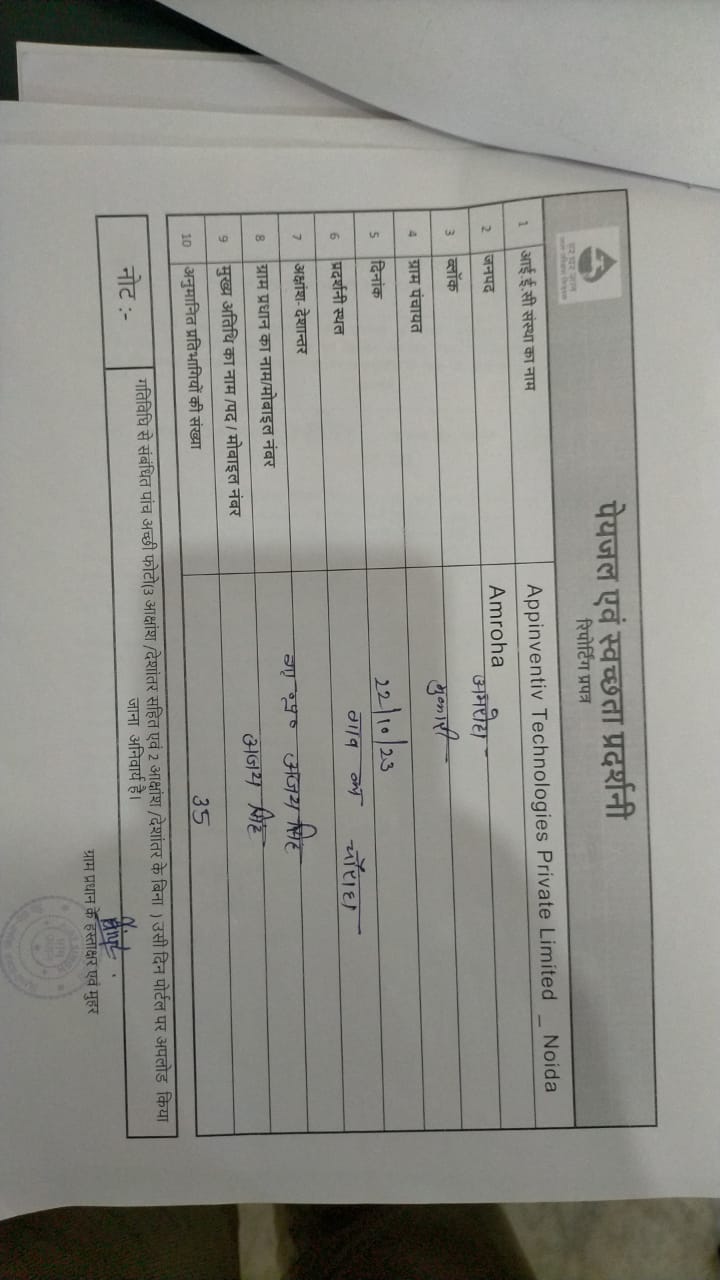 हर घर जल
जल जीवन मिशन
पेयजल एवं स्वच्छता प्रदर्शनी
रिपोर्टिंग प्रपत्र
1 आई.ई.सी संस्था का नाम Appinventiv Technologies Private Limited _ Noida
2 जनपद Amroha
3 ब्लॉक अमरोहा
4 ग्राम पंचायत
5 दिनांक 22/10/23
6 प्रदर्शनी स्थल गाव का चौराहा
7 अक्षांश- देशान्तर
8 ग्राम प्रधान का नाम/मोबाइल नंबर अजय सिंह
9 मुख्य अतिथि का नाम /पद / मोबाइल नंबर अजय सिंह
10 अनुमानित प्रतिभागियों की संख्या 35
नोट :- गतिविधि से संबंधित पांच अच्छी फोटो(3 आक्षांश /देशांतर सहित एवं 2 आक्षांश /देशांतर के बिना ) उसी दिन पोर्टल पर अपलोड किया
जाना अनिवार्य है।
ग्राम प्रधान के हस्ताक्षर एवं मुहर